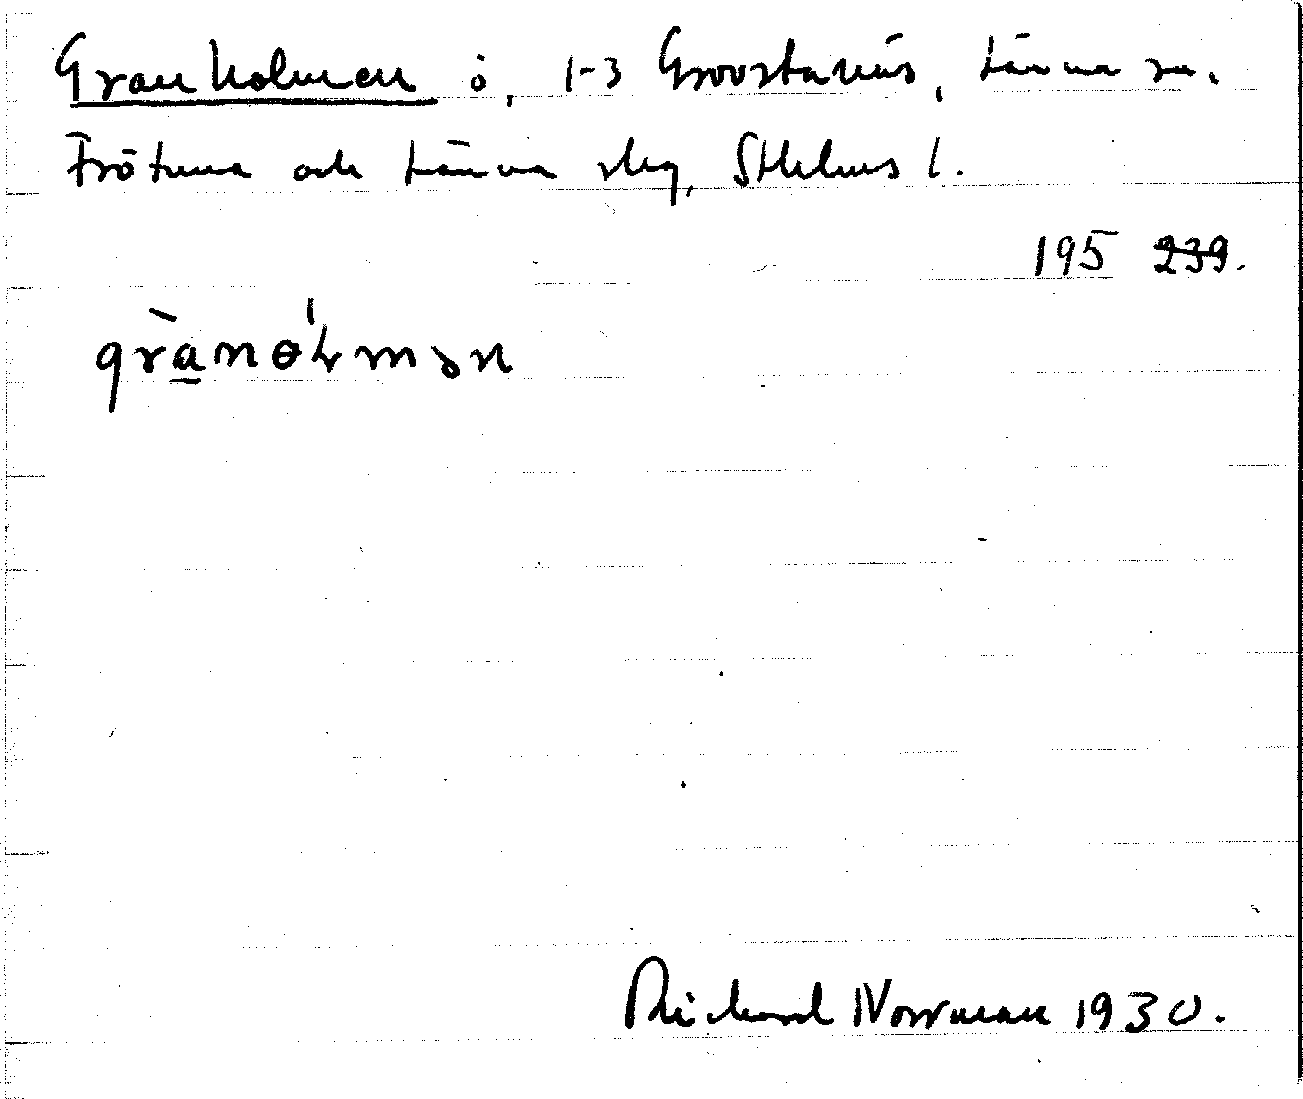 Granholmen ö, 1-3 Grovstanäs, Länna sn.
Frötuna och Länna slg, Sthlms l.
195 239.
grànɵ́ɫmən
Richard Norrman 1930.